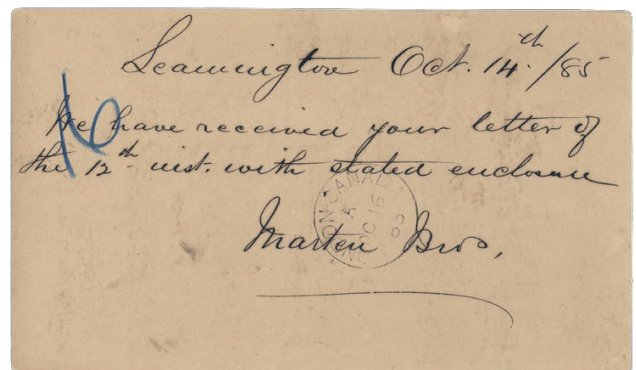 Leamington Oct. 14th /85
We have received your letter of
the 12th inst. with stated enclosure
Marten Bros,
16
CANAL
A
OC 16
85